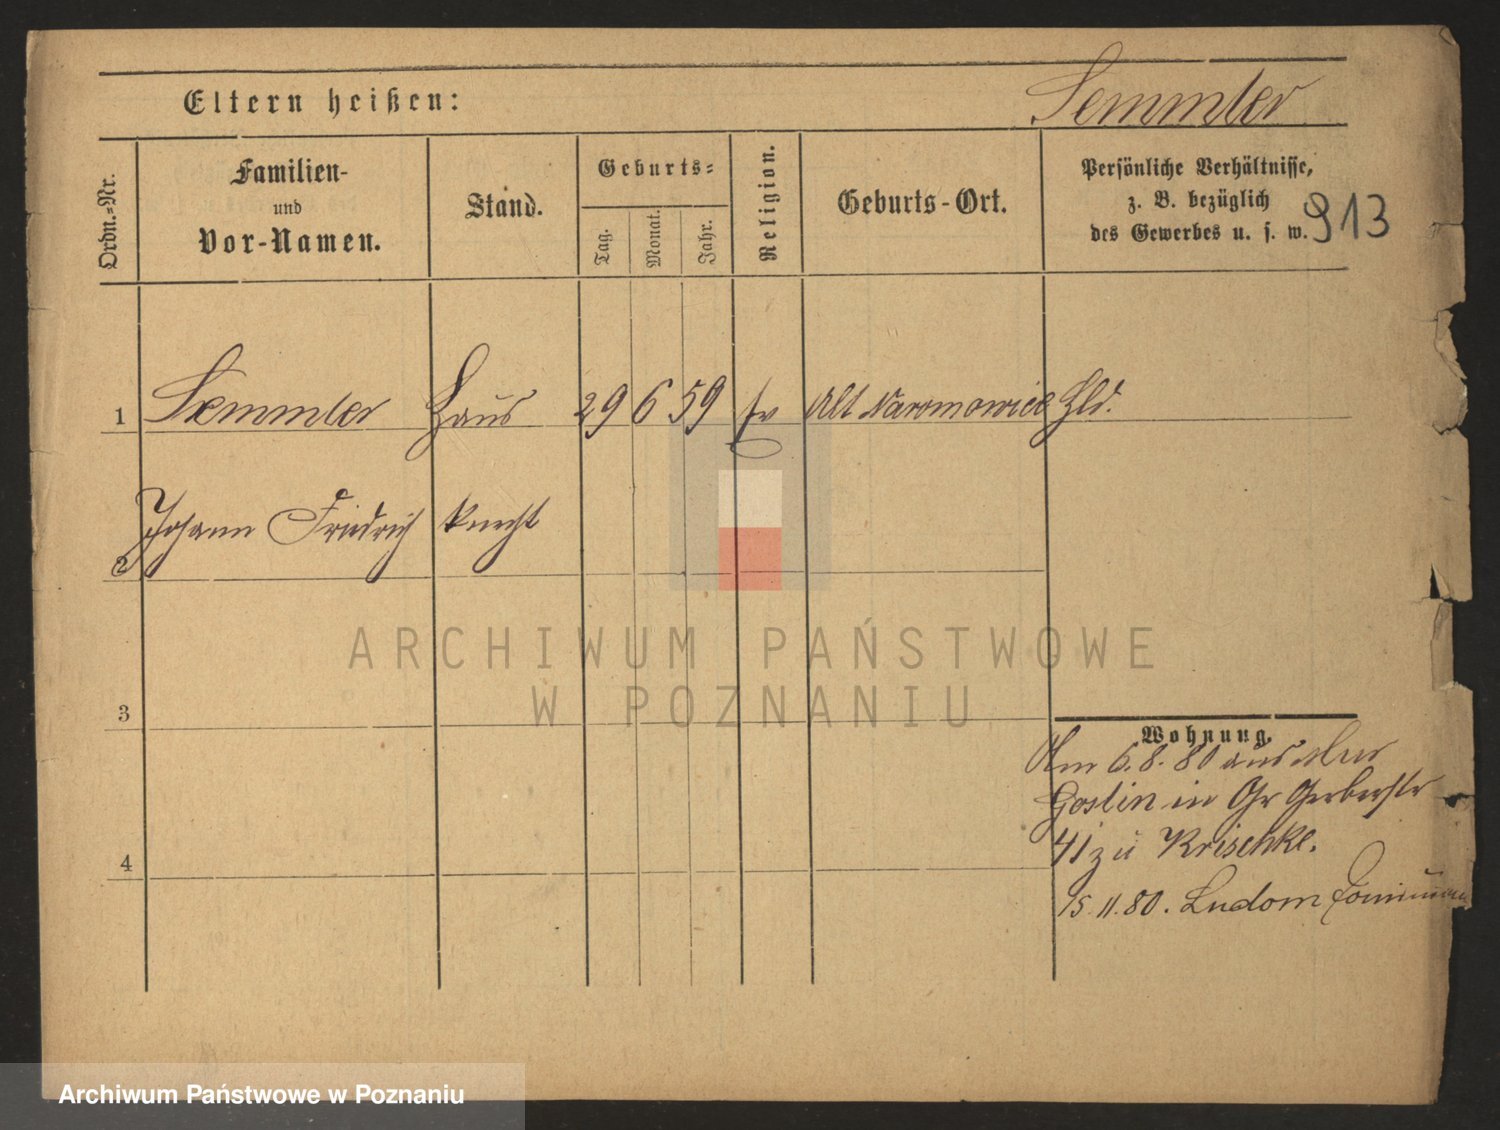 Eltern heißen:
Semmler
Ordn.-Nr.
Familien-
und
Vor-Namen.
Stand.
Geburts-
Tag.
Monat.
Jahr.
Religion.
Geburts-Ort.
Persönliche Verhältnisse,
z. B. bezüglich
des Gewerbes u. s. w.
913
1 Semmler Haus 29 6 59 Ev Alt Naramowice
Johann Friedrich knecht
2
3
4
Wohnung.
Am 6.8.80 aus
Gostin in Gr Gerberstr
41 zu Krischke.
15.11.80. Ludom
ARCHIWUM PAŃSTWOWE
W POZNANIU
Archiwum Państwowe w Poznaniu